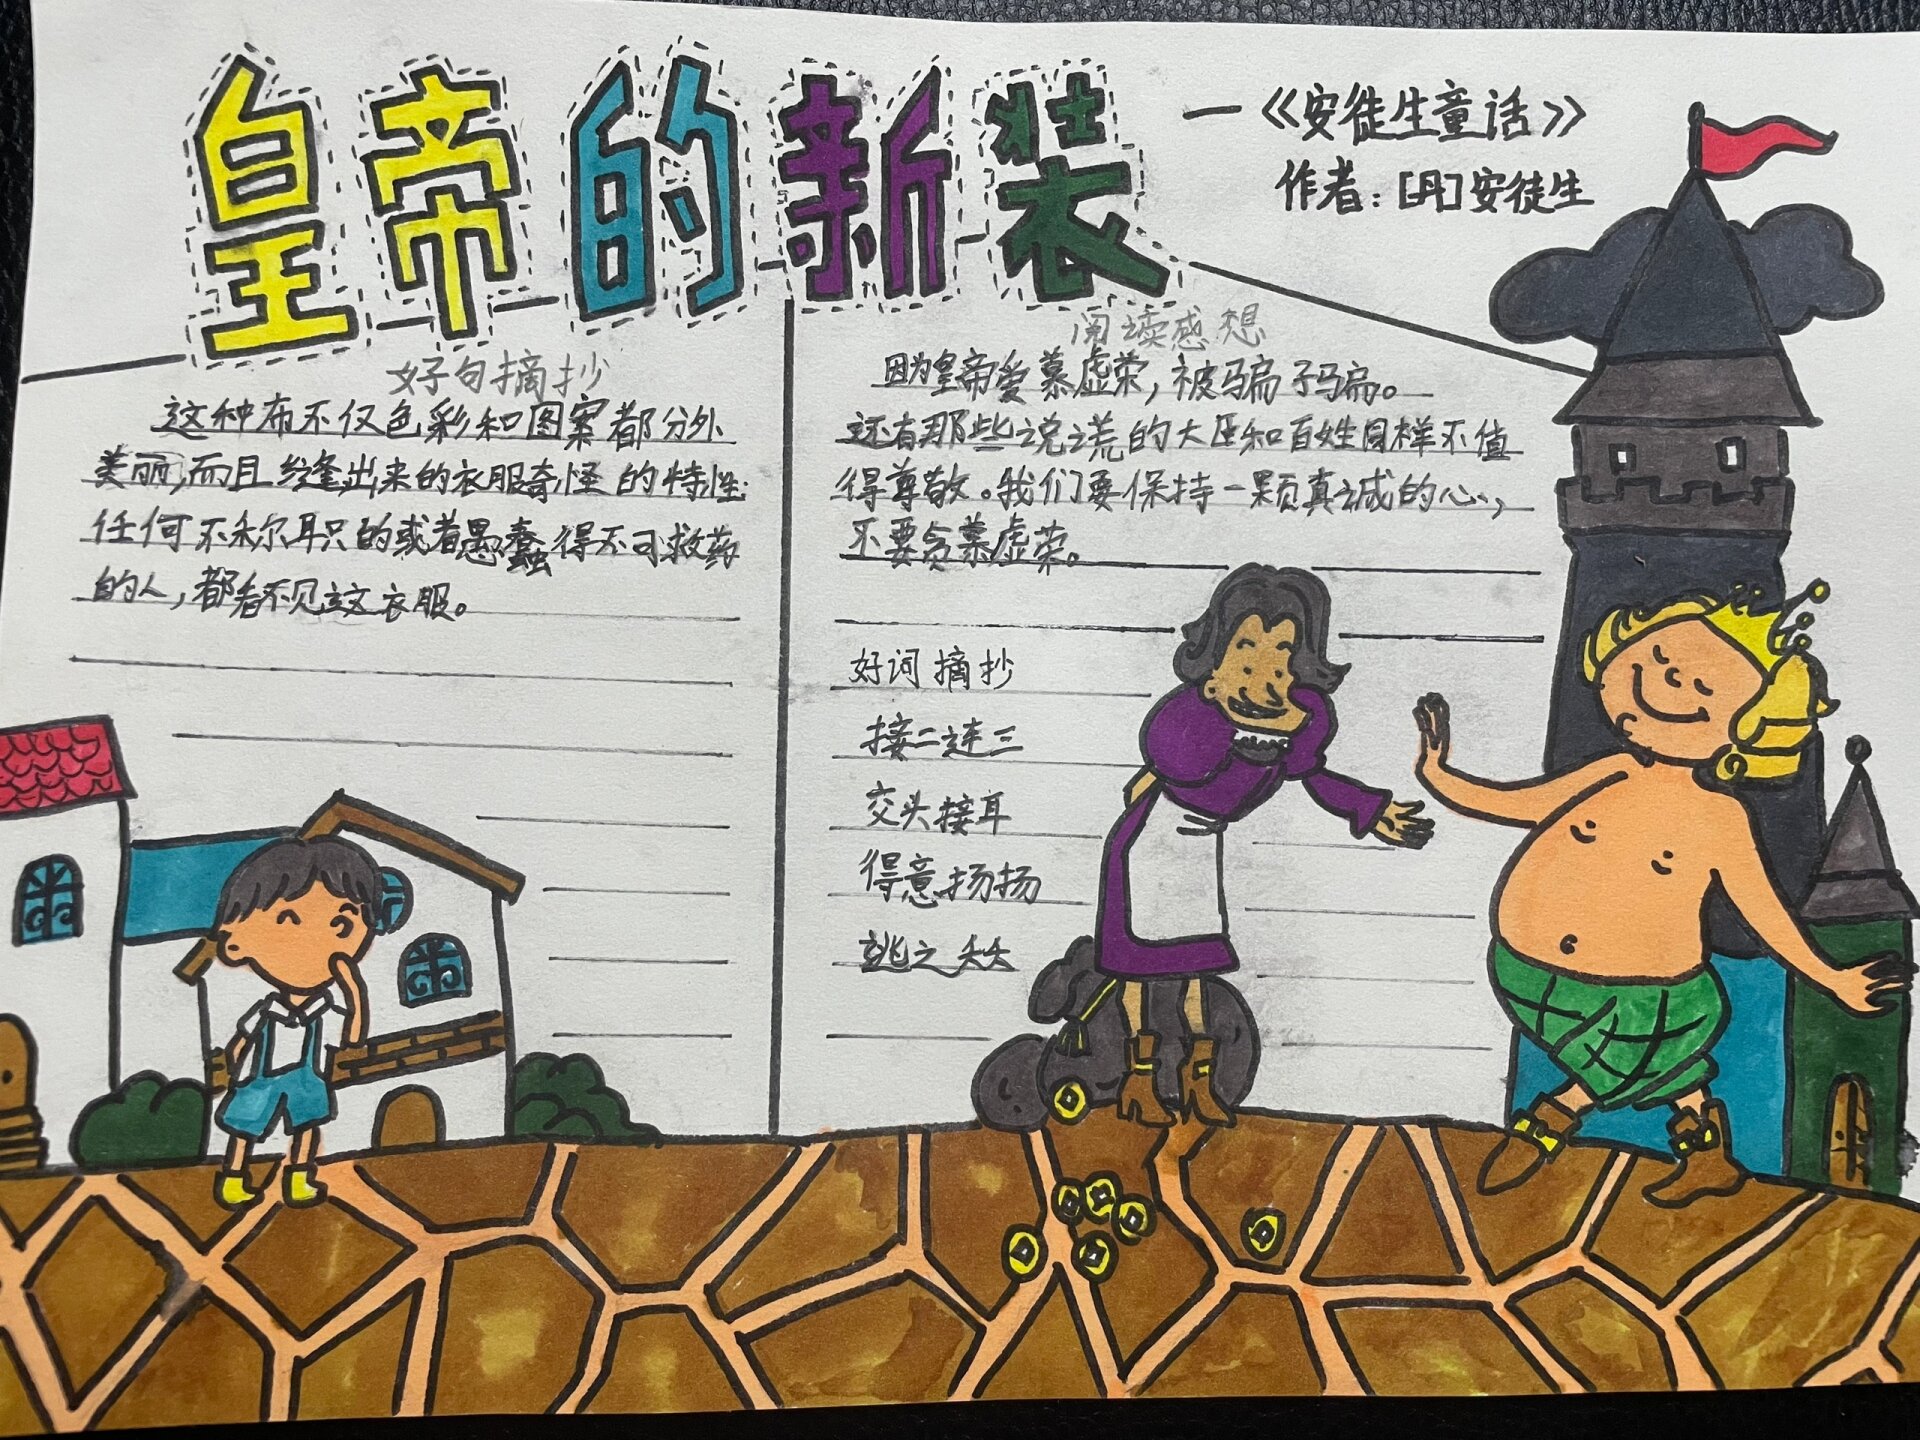 皇帝的新装
—《安徒生童话》
作者:[丹]安徒生
好句摘抄
这种布不仅色彩和图案都分外
美丽,而且缝出来的衣服奇怪的特性:
任何不称职的或者愚蠢得不可救药
的人,都看不见这衣服。
阅读感想
因为皇帝爱慕虚荣,被骗子骗。
还有那些说谎的大臣和百姓同样不值
得尊敬。我们要保持一颗真诚的心,
不要贪慕虚荣。
好词摘抄
接二连三
交头接耳
得意扬扬
逃之夭夭